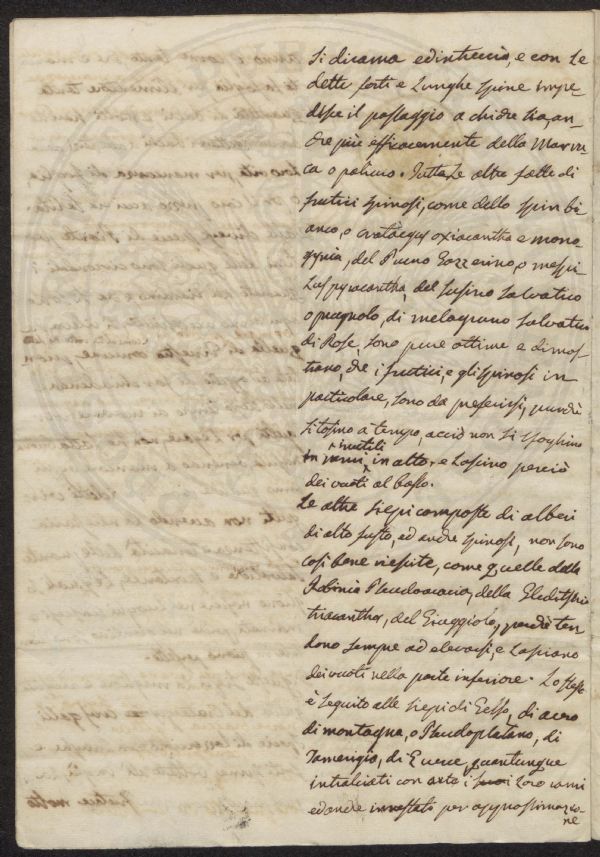 si dirama ed intreccia, e con le
dette forti e lunghe spine impe-
disce il passaggio a chichesia, an-
che più efficacemente della Marru-
ca o paliuro. Tutte le altre siepi di
frutici spinosi, come dello spin bi-
anco, o crataegus oxiacantha e mono-
gynia, del Pruno Gazzerino, o mespi-
lus pyracantha, del susino salvatico
o prugnolo, di melagrano salvatico
di Rose, sono pure ottime e dimos-
trano, che i frutici, e gli spinosi in
particolare, sono da preferirsi, purchè
si tosino a tempo, acciò non si spoglino
inutili
in rami, in alto, e lascino perciò
dei vuoti al basso.
Le altre siepi composte di alberi
di alto fusto, ed anche spinosi, non sono
così bene riescite, come quelle della
Robinia Pseudoacacia, della Gleditshia
triacanthos, del Giuggiolo, perchè ten-
dono sempre ad elevarsi, e lasciano
dei vuoti nella parte inferiore. Lo stesso
è seguito alle siepi di Gelso, di acero
di montagna, o Pseudoplatano, di
Tamerigio, di Querce, quantunque
intralciati con arte i suoi loro rami
ed anche innestati per approssimazio-
ne